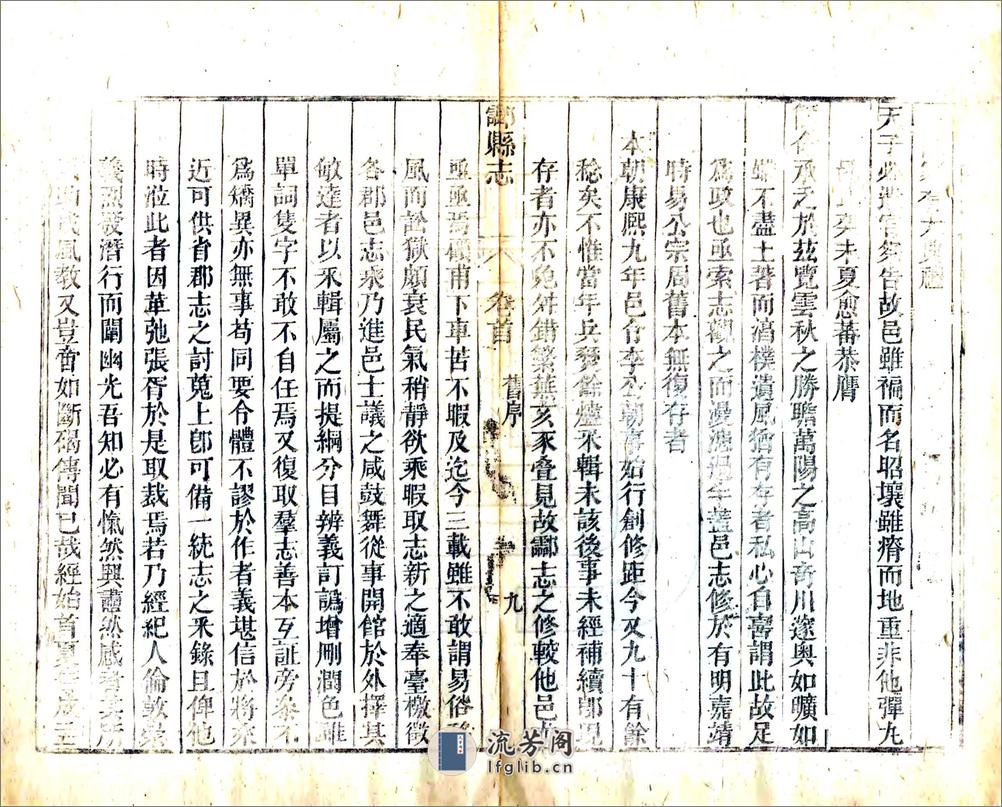 大典禮
天子必遣官祭告故邑雖褊而名昭壤雖瘠而地重非他彈丸
癸未夏愈蕃恭膺
簡命承乏於茲覽雲秋之勝瞻萬陽之高山奇川邃奧如曠如
雖不盡土著而淳樸遺風猶有存者私心自喜謂此故足
爲政也亟索志觀之而漫漶過半蓋邑志修於有明嘉靖
時易公宗周舊本無復存者
本朝康熙九年邑令李公朝事始行創修距今又九十有餘
稔矣不惟當年兵燹餘燼采輯未該後事未經補續卽現
存者亦不免舛錯繁蕪亥豕疊見故酃志之修較他邑尤
酃縣志
卷首
舊序
九
亟亟焉顧甫下車苦不暇及迄今三載雖不敢謂易俗移
風而訟獄頗衰民氣稍靜欲乘暇取志新之適奉臺檄徵
各郡邑志乘乃進邑士議之咸鼓舞從事開館於外擇其
敏達者以釆輯屬之而提綱分目辨義訂譌增刪潤色雖
單詞隻字不敢不自任焉又復取羣志善本互証旁參不
爲矯異亦無事苟同要令體不謬於作者義堪信於將來
近可供省郡志之討蒐上卽可備一統志之釆錄且俾他
時蒞此者因革弛張胥於是取裁焉若乃經紀人倫敦崇
義烈發潛行而闡幽光吾知必有愾然興讀然感者其所
風敎又豈啻如斷碣傳聞已哉經始首夏